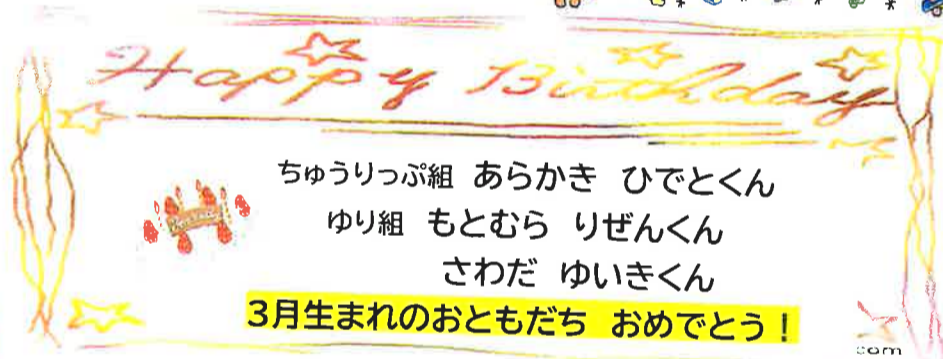 Happy Birthday
ちゅうりっぷ組 あらかき ひでとくん
ゆり組 もとむら りぜんくん
さわだ ゆいきくん
3月生まれのおともだち おめでとう！
com